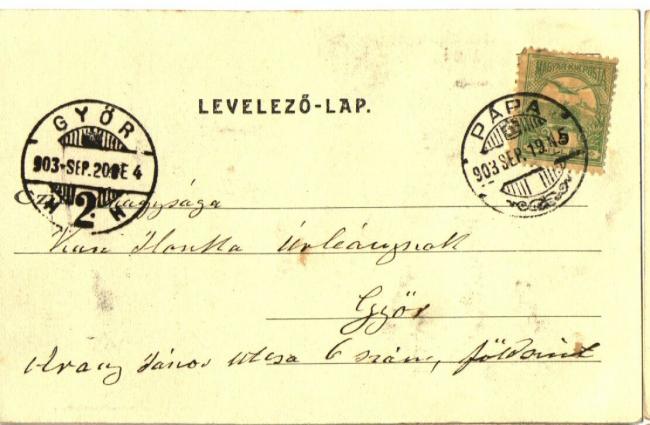 LEVELEZŐ-LAP.
MAGYAR KIR. POSTA
5
PÁPA
903 SEP. 19
GYŐR
903-SEP. 20 DE 4
2
nagysága
Ilonka Úrleánynak
Győr
Arany János utcza 6 szám, földszint